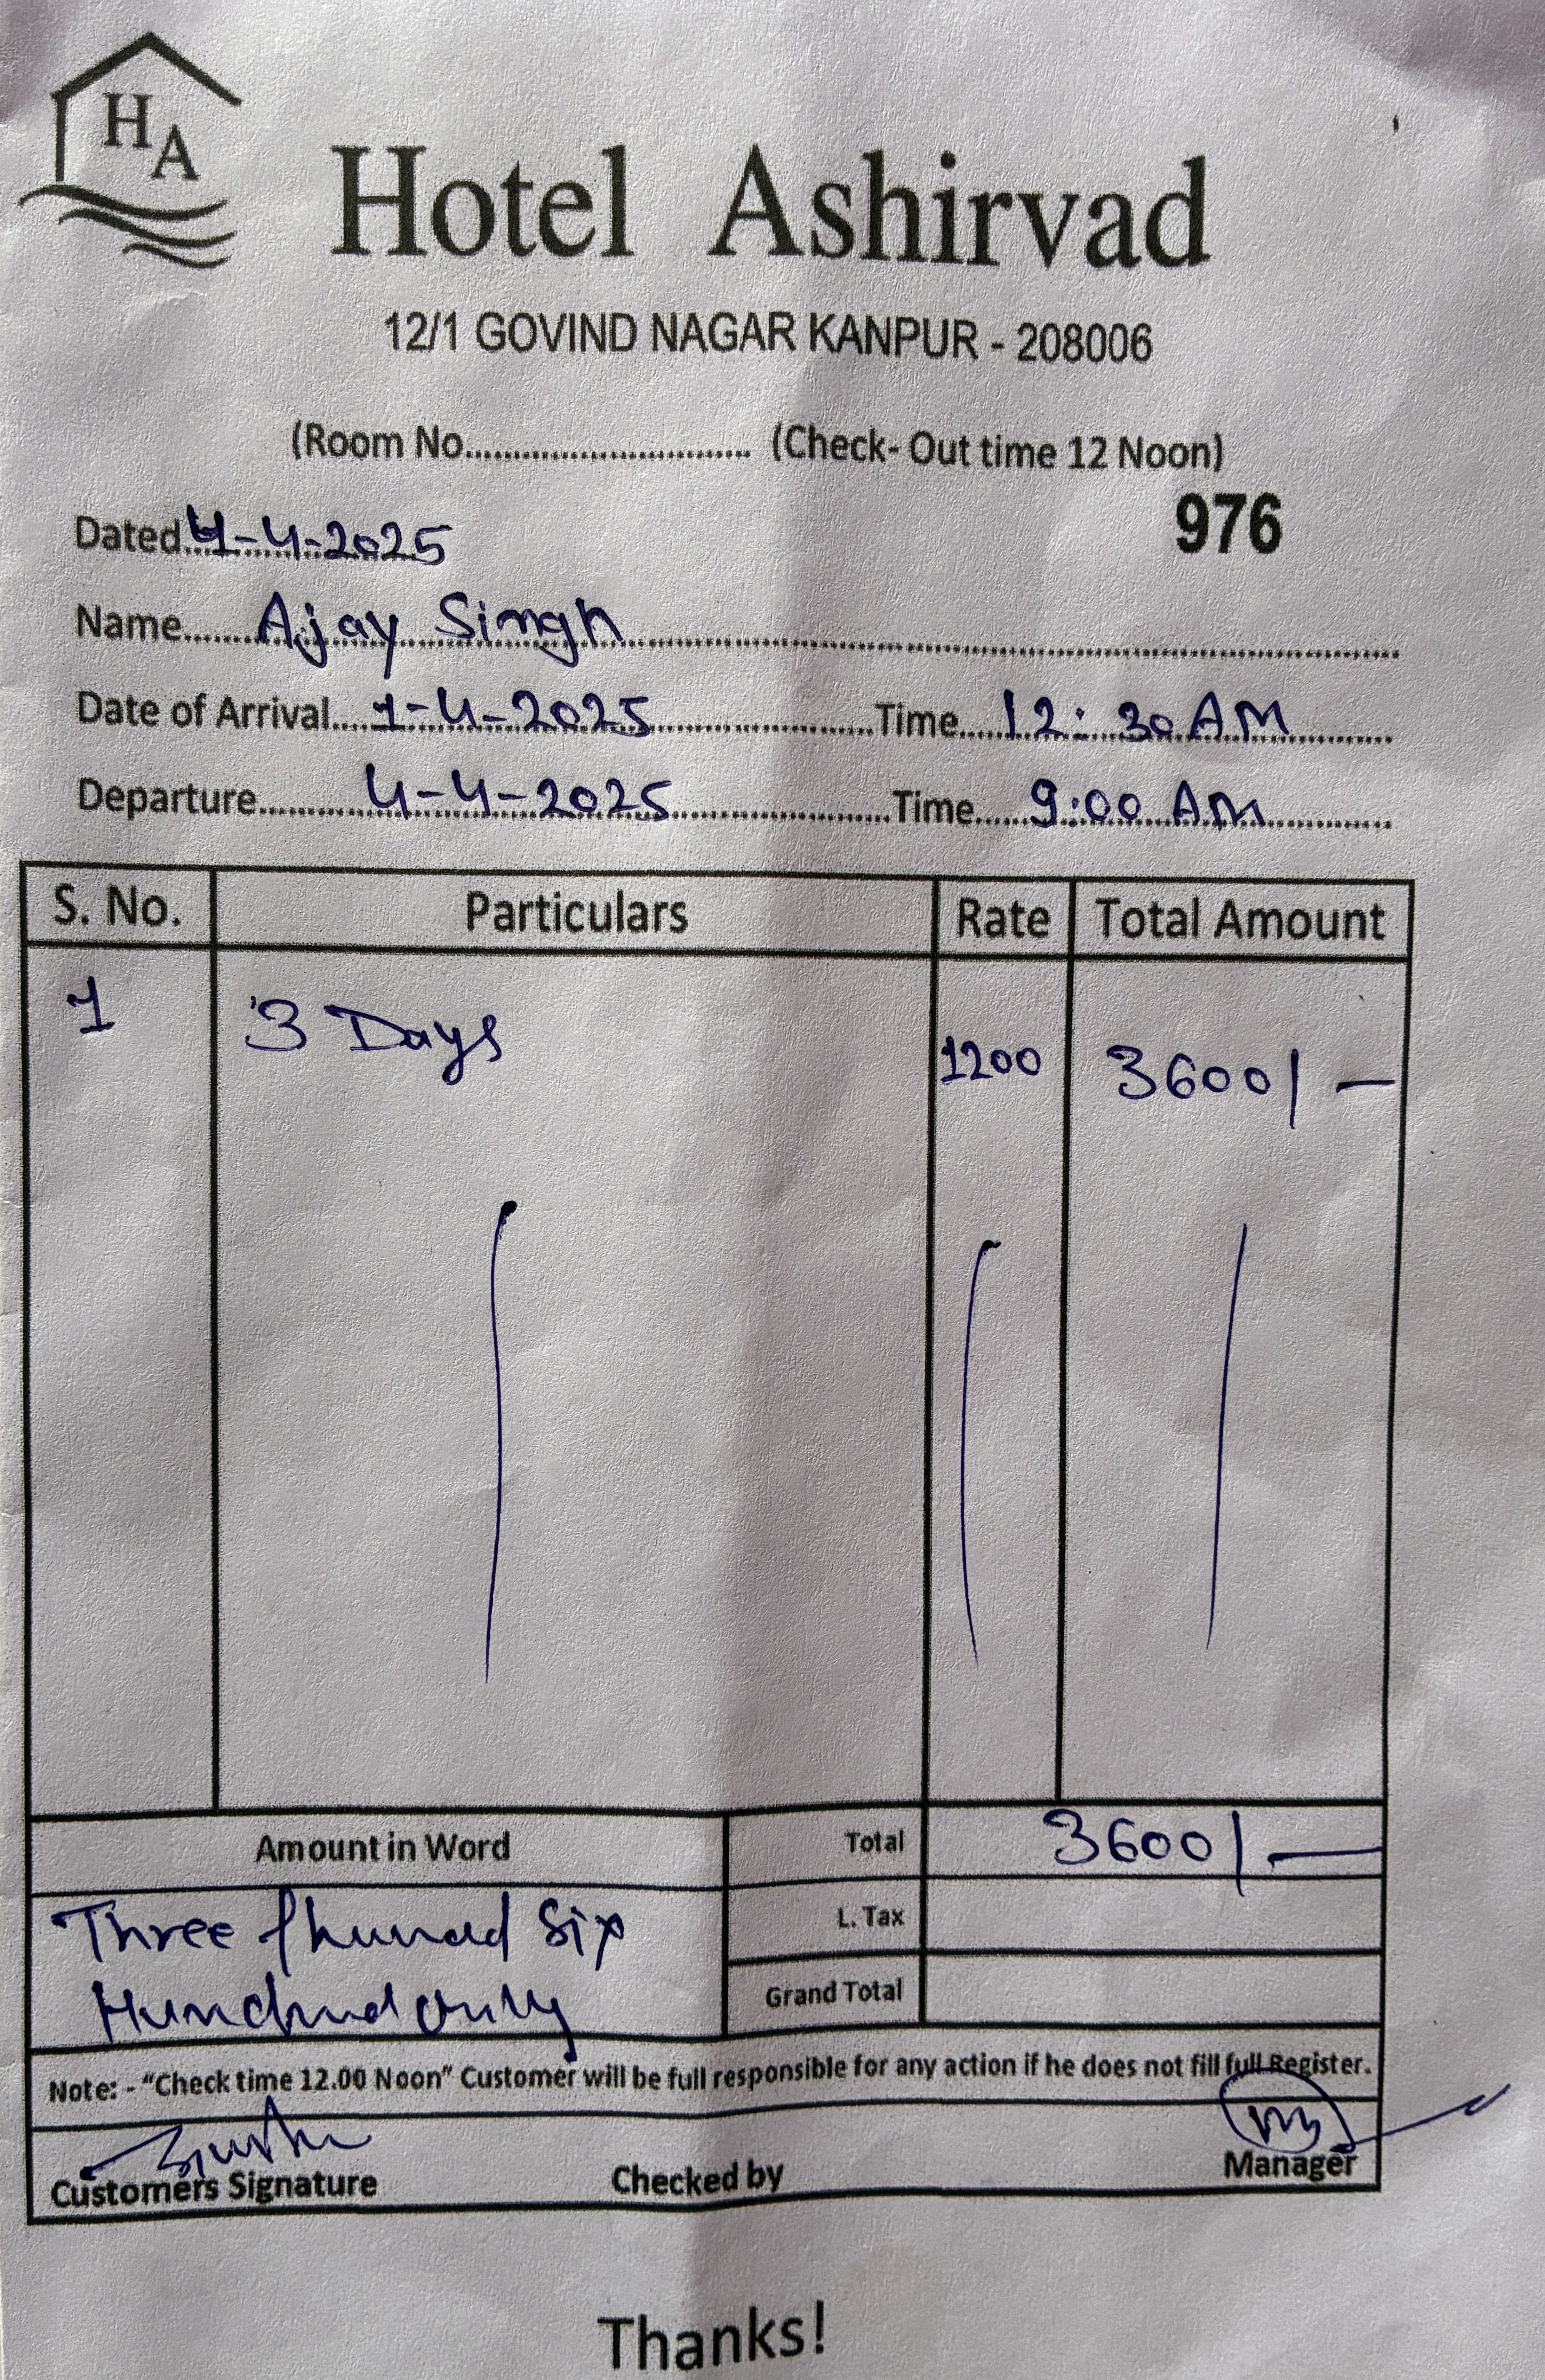 HA
Hotel Ashirvad
12/1 GOVIND NAGAR KANPUR - 208006
(Room No............................. (Check- Out time 12 Noon)
976
Dated 4-4-2025
Name Ajay Singh
Date of Arrival 1-4-2025 Time 12:30 AM
Departure 4-4-2025 Time 9:00 AM
S. No. Particulars Rate Total Amount
1 3 Days 1200 3600/-
Amount in Word Total 3600/-
Three Six L. Tax
only Grand Total
Note: - "Check time 12.00 Noon" Customer will be full responsible for any action if he does not fill full Register.
Customers Signature Checked by Manager
Thanks!